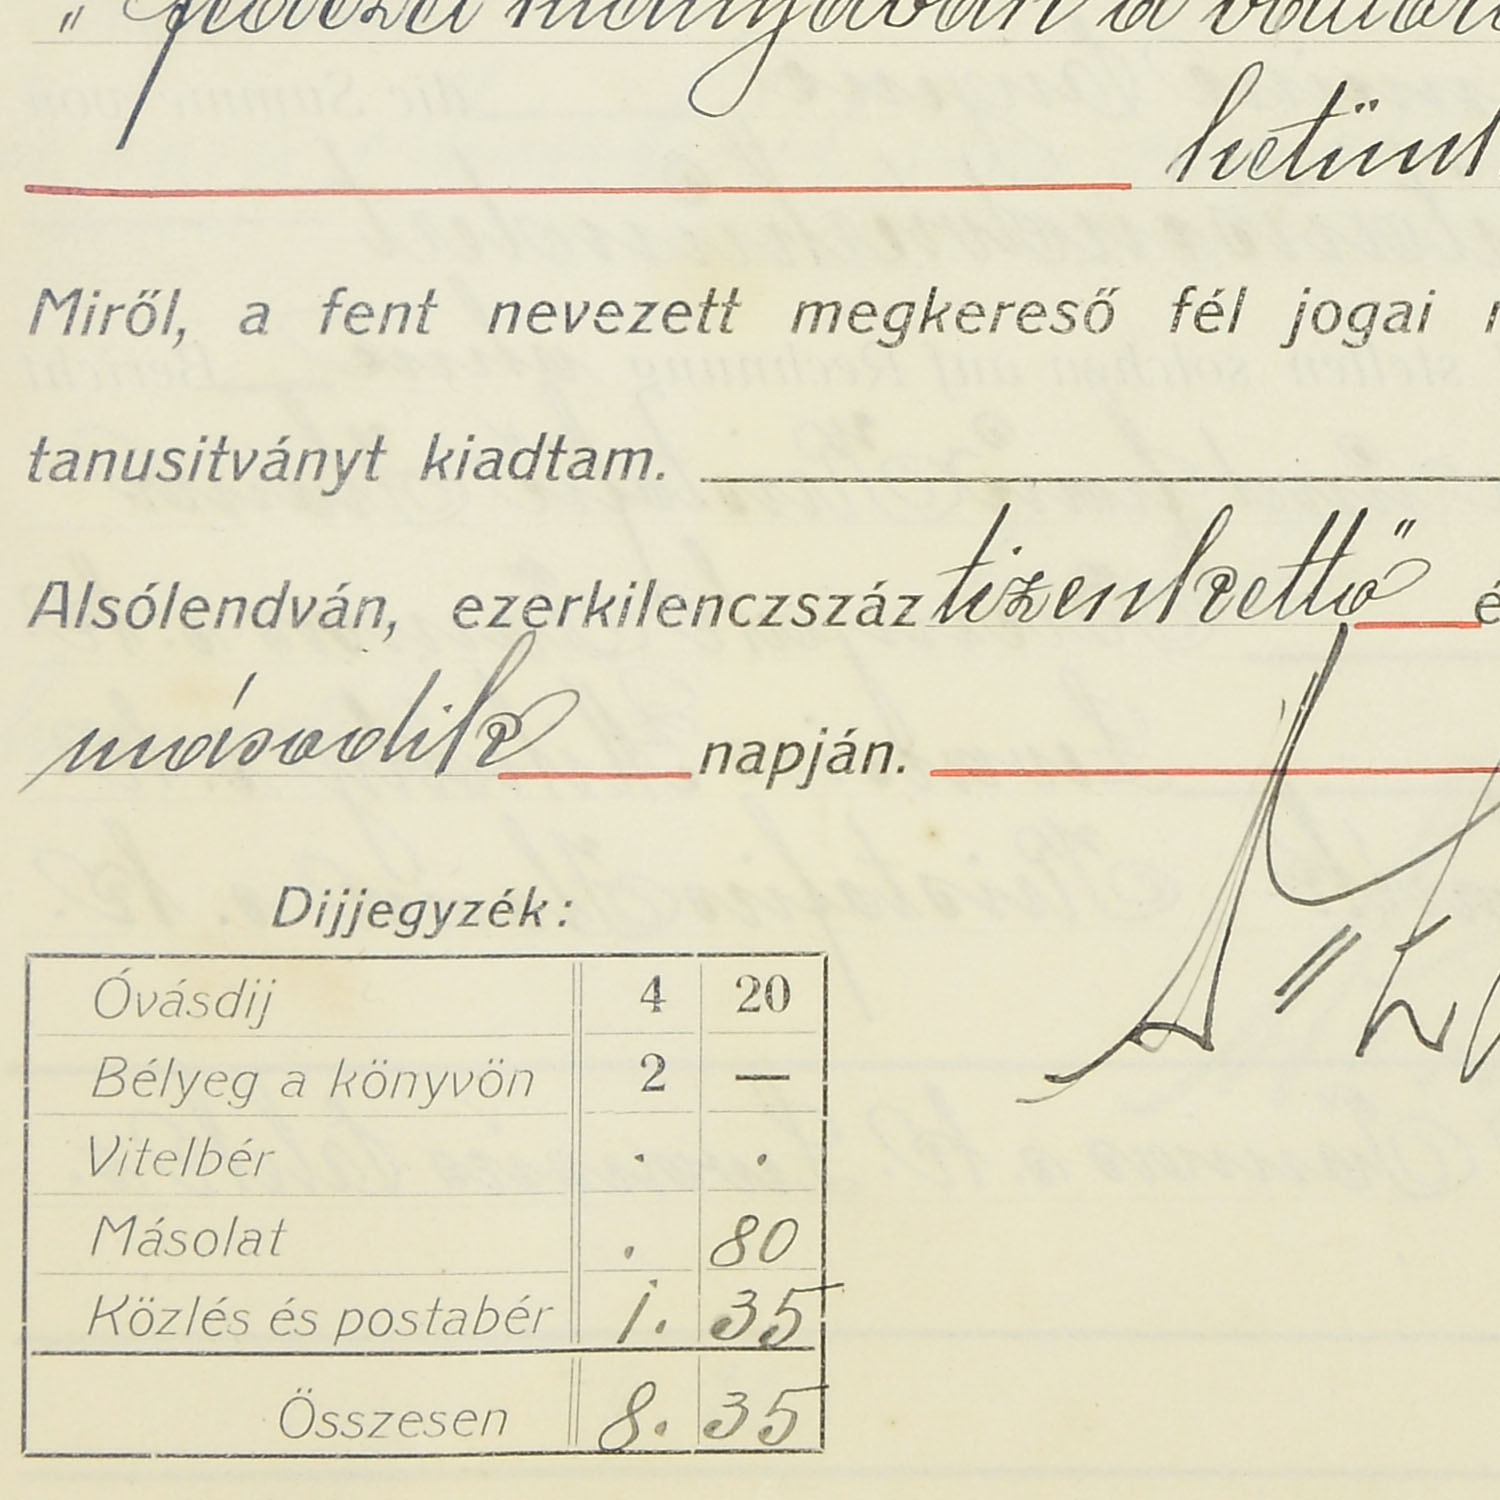 hiányában a
hetünk
Miről, a fent nevezett megkereső fél jogai
tanusitványt kiadtam.
Alsólendván, ezerkilenczszáz tizenkettő é
második napján.
Dijjegyzék:
Óvásdij 4 20
Bélyeg a könyvön 2 —
Vitelbér . .
Másolat . 80
Közlés és postabér 1. 35
Összesen 8. 35